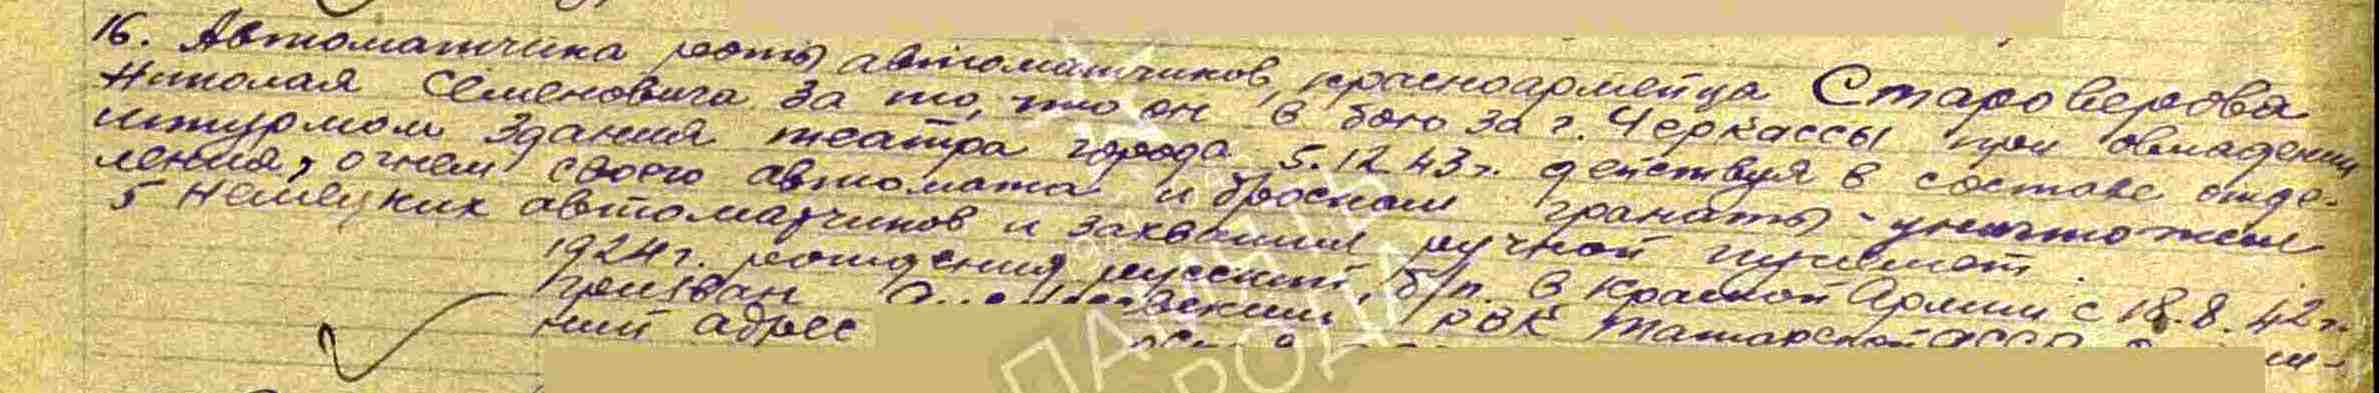 16. Автоматчика роты автоматчиков, красноармейца Староверова
Николая Семеновича за то, что он в бою за г. Черкассы при овладении
штурмом здания театра города 5.12.43г. действуя в составе отде-
ления, огнем своего автомата и броском гранаты - уничтожил
5 немецких автоматчиков и захватил ручной пулемет.
1924г. рождения, русский, б/п. в Красной Армии с 18.8.42г.
призван РВК Татарской АССР
ний адрес
ПАМЯТЬ
НАРОДА